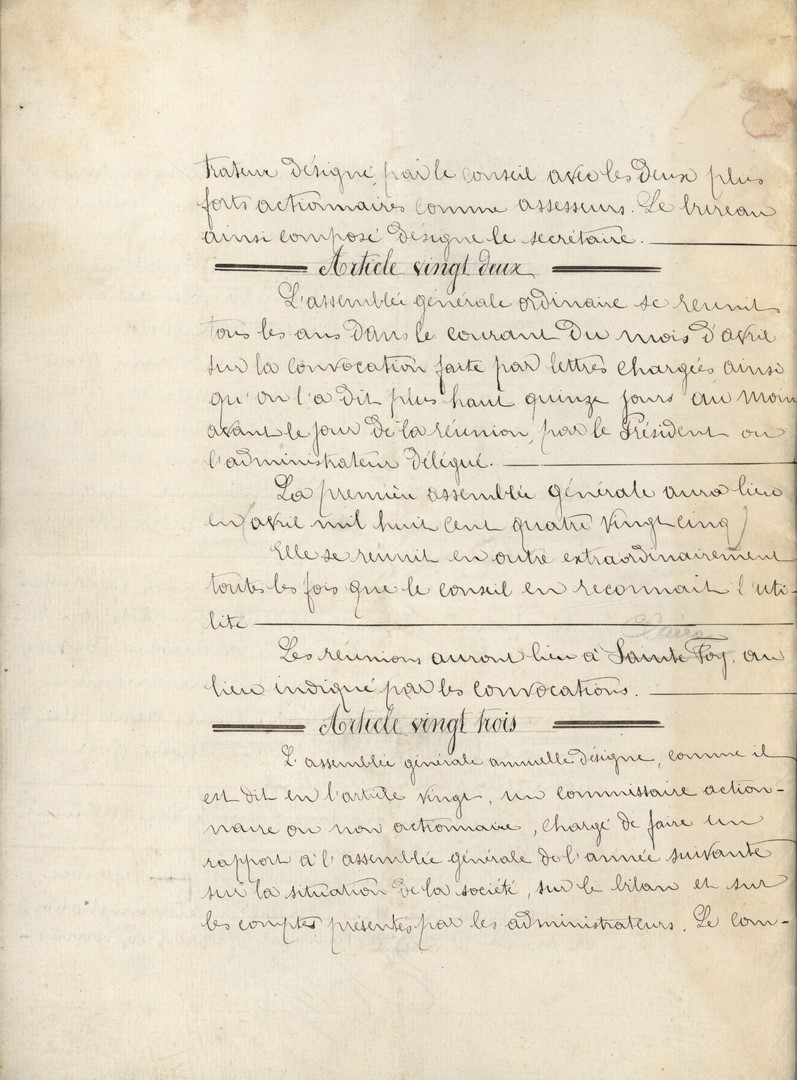 trateur désigné, par le conseil avec les deux plus
forts actionnaires comme assesseurs. Le bureau
ainsi composé désigne le secrétaire.
Article vingt deux
L'assemblée générale ordinaire se réunit
tous les ans dans le courant du mois d'avril
sur la convocation faite par lettres chargées ainsi
qu'on l'a dit plus haut quinze jours au moin
avant le jour de la réunion, par le Président ou
l'administrateur délégué.
La première assemblée générale aura lieu
en (avril mil huit cent quatre vingt cinq)
Elle se réunit en outre extraordinairement
toutes les fois que le conseil en reconnait l'uti-
lité
Les réunions auront lieu à Sainte Foy. au
lieu indiqué par les convocations.
Article vingt trois
L'assemblée générale annuelle désigne, comme il
est dit en l'article vingt, un commissaire action-
naire ou non actionnaire, chargé de faire un
rapport à l'assemblée générale de l'année suivante
sur la situation de la société, sur le bilan et sur
les comptes présentés par les administrateurs. Le com-